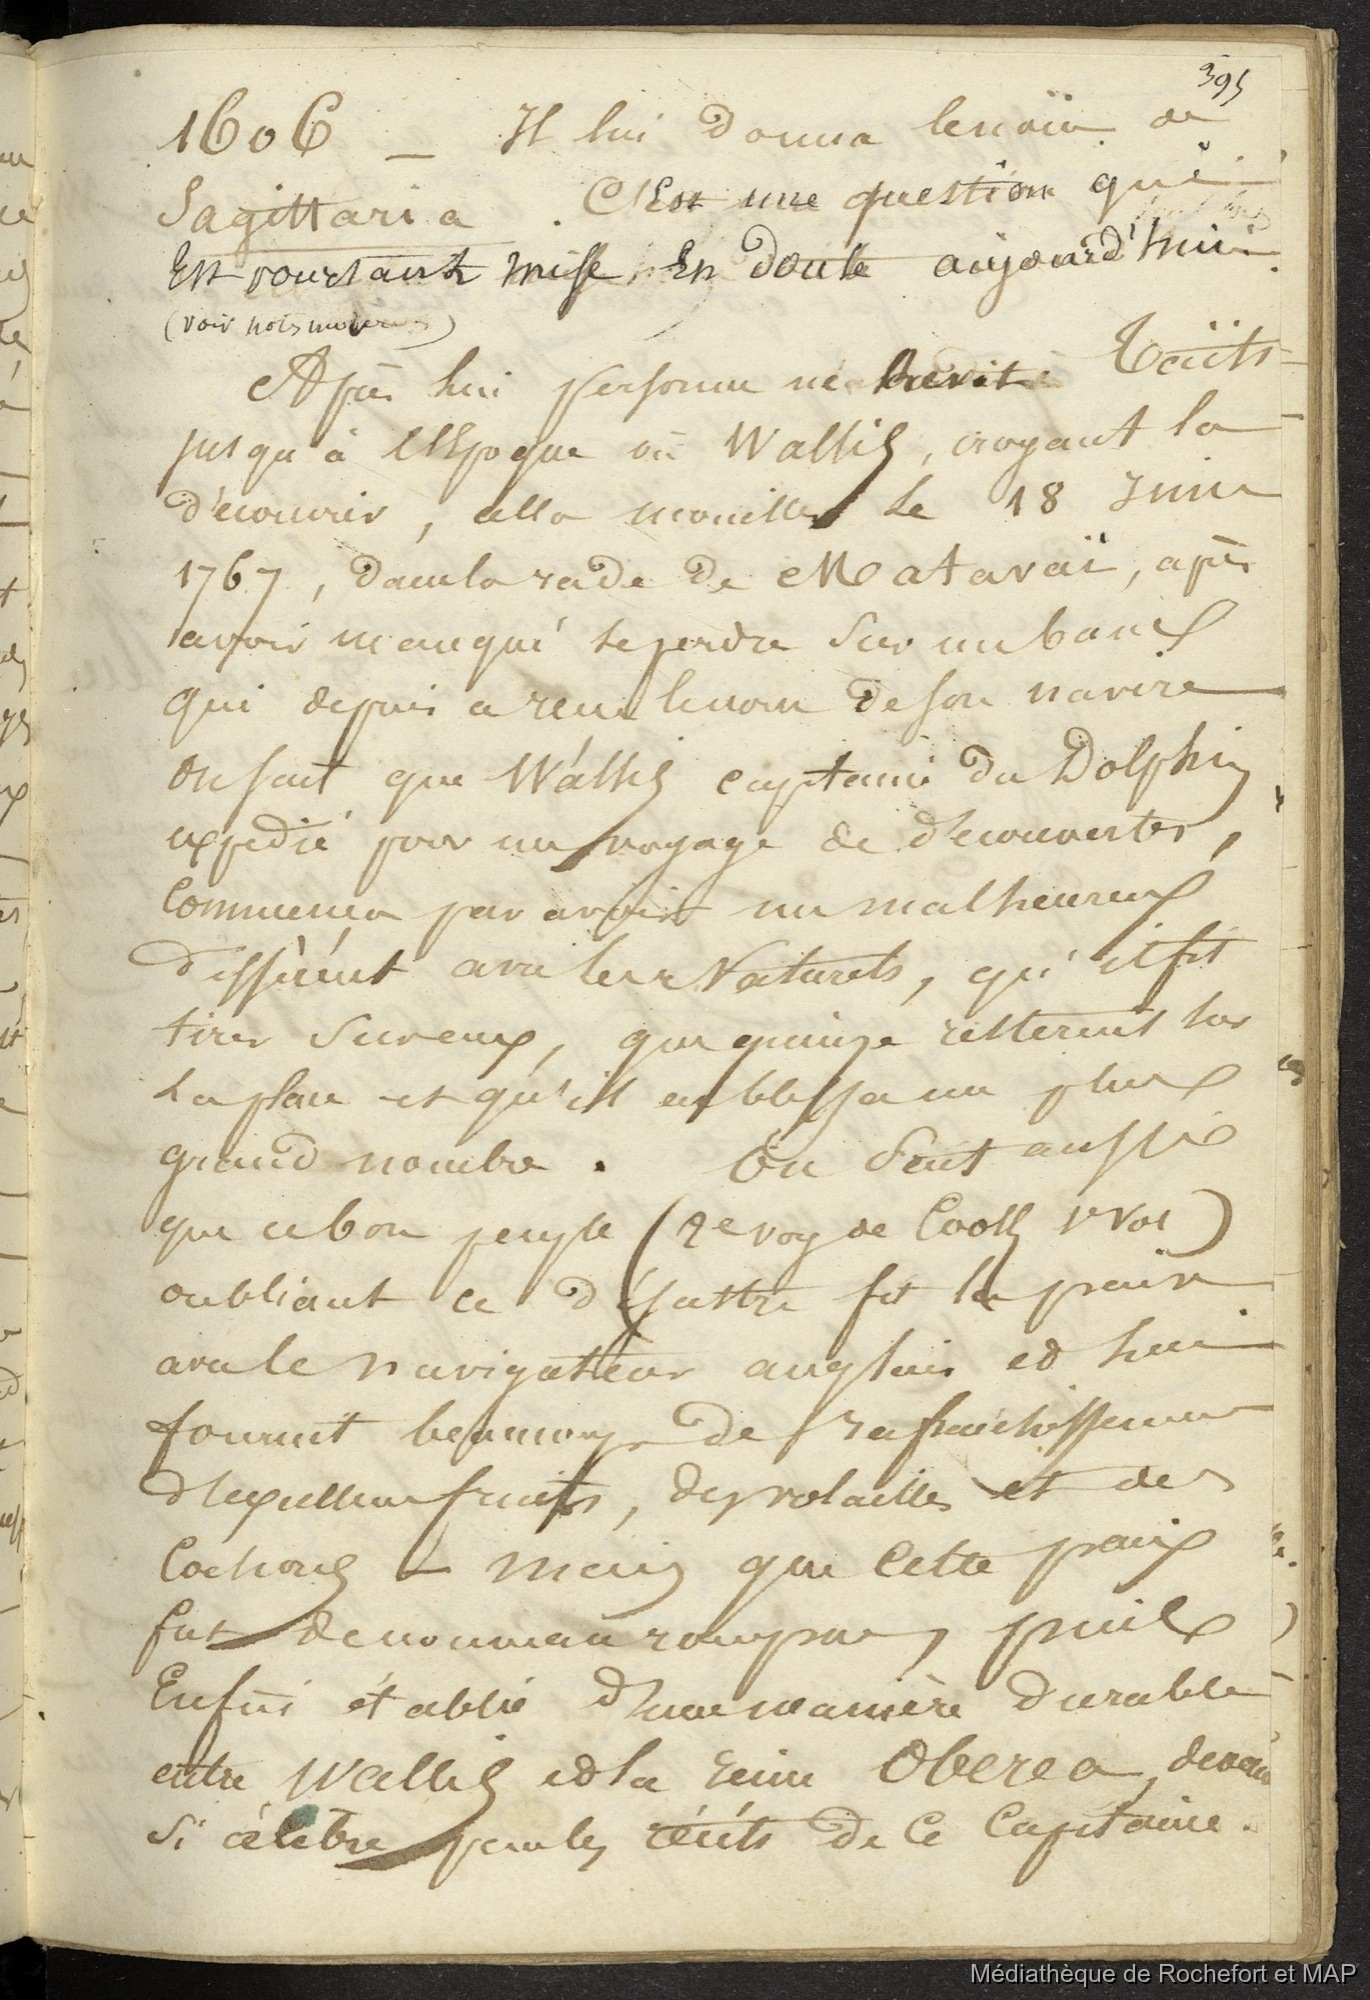 395
1606 — Il lui donna le nom de
Sagittaria. C'Est une question qui
Est pourtant mise En doute aujourd'hui.
(voir nots
Après lui personne ne Revit Taïti
jusqu'à l'Epoque où Wallis, croyant la
découvrir, alla mouiller le 18 Juin
1767, dans la rade de Matavaï, après
avoir manqué se perdre sur un banc
qui depuis a reçu le nom de son navire
on sait que Wallis capitaine du Dolphin
expédié pour un voyage de découvertes,
Commença par avoir un malheureux
différent avec les Naturels, qu'il fit
tirer sur eux, que quinze resterent sur
la place et qu'il en blessa un plus
grand nombre. On sait aussi
que ce bon peuple (2e voy de Cook 1r Vol)
oubliant ce désastre fit la paix
avec le navigateur anglais et lui
fournit beaucoup de rafraichissemens
d'excellens fruits, des volailles et des
Cochons — mais que Cette paix
fut de nouveau rompue, puis
Enfin établie d'une manière durable
entre Wallis et la reine Oberea, devenue
si célèbre par les récits de Ce Capitaine.
Médiathèque de Rochefort et MAP